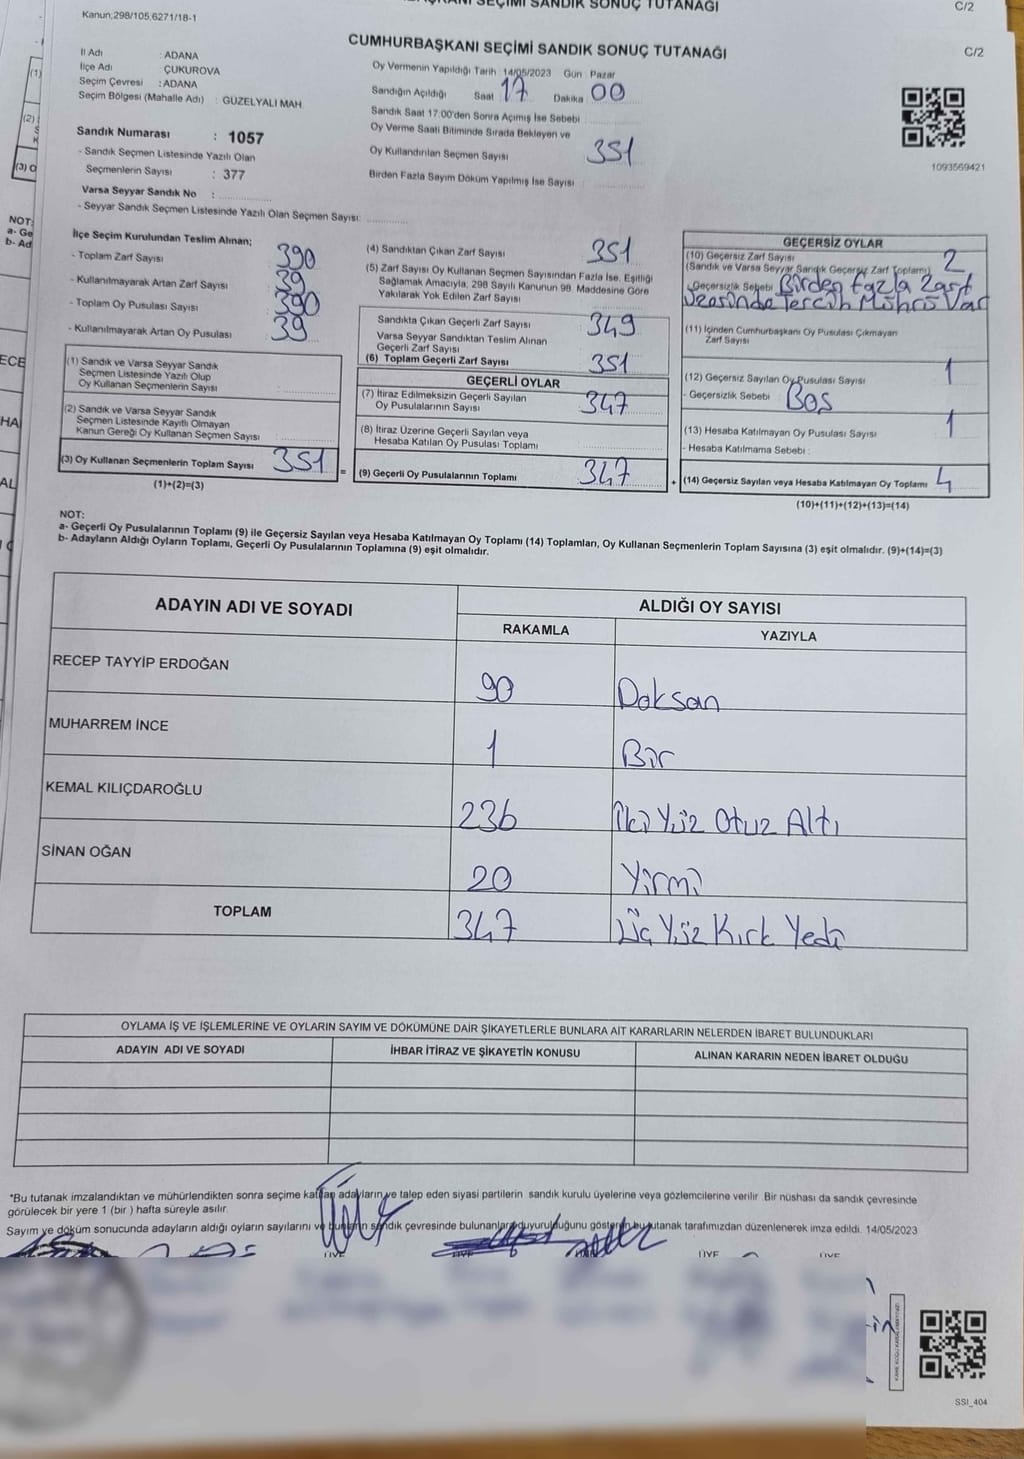 KANI SEÇİMİ SANDIK SONUÇ TUTANAĞI
C/2
Kanun;298/105,6271/18-1
CUMHURBAŞKANI SEÇİMİ SANDIK SONUÇ TUTANAĞI
C/2
İl Adı : ADANA
İlçe Adı : ÇUKUROVA
Seçim Çevresi : ADANA
Seçim Bölgesi (Mahalle Adı) : GÜZELYALI MAH.
Sandık Numarası : 1057
- Sandık Seçmen Listesinde Yazılı Olan
Seçmenlerin Sayısı : 377
Varsa Seyyar Sandık No :
- Seyyar Sandık Seçmen Listesinde Yazılı Olan Seçmen Sayısı:
Oy Vermenin Yapıldığı Tarih : 14/05/2023 Gün : Pazar
Sandığın Açıldığı Saat 17 Dakika 00
Sandık Saat 17:00'den Sonra Açımış İse Sebebi :
Oy Verme Saati Bitiminde Sırada Bekleyen ve
Oy Kullandırılan Seçmen Sayısı 351
Birden Fazla Sayım Döküm Yapılmış İse Sayısı :
1093569421
İlçe Seçim Kurulundan Teslim Alınan;
- Toplam Zarf Sayısı 390
- Kullanılmayarak Artan Zarf Sayısı 39
- Toplam Oy Pusulası Sayısı 390
- Kullanılmayarak Artan Oy Pusulası 39
(1) Sandık ve Varsa Seyyar Sandık
Seçmen Listesinde Yazılı Olup
Oy Kullanan Seçmenlerin Sayısı
(2) Sandık ve Varsa Seyyar Sandık
Seçmen Listesinde Kayıtlı Olmayan
Kanun Gereği Oy Kullanan Seçmen Sayısı
(3) Oy Kullanan Seçmenlerin Toplam Sayısı 351
(1)+(2)=(3)
=
(4) Sandıktan Çıkan Zarf Sayısı 351
(5) Zarf Sayısı Oy Kullanan Seçmen Sayısından Fazla İse, Eşitliği
Sağlamak Amacıyla, 298 Sayılı Kanunun 98. Maddesine Göre
Yakılarak Yok Edilen Zarf Sayısı
Sandıkta Çıkan Geçerli Zarf Sayısı 349
Varsa Seyyar Sandıktan Teslim Alınan
Geçerli Zarf Sayısı
(6) Toplam Geçerli Zarf Sayısı 351
GEÇERLİ OYLAR
(7) İtiraz Edilmeksizin Geçerli Sayılan
Oy Pusulalarının Sayısı 347
(8) İtiraz Üzerine Geçerli Sayılan veya
Hesaba Katılan Oy Pusulası Toplamı
(9) Geçerli Oy Pusulalarının Toplamı 347
+
GEÇERSİZ OYLAR
(10) Geçersiz Zarf Sayısı 2
(Sandık ve Varsa Seyyar Sandık Geçersiz Zarf Toplamı)
- Geçersizlik Sebebi Birden Fazla Zarf
Üzerinde Tercih Mührü Var
(11) İçinden Cumhurbaşkanı Oy Pusulası Çıkmayan
Zarf Sayısı
(12) Geçersiz Sayılan Oy Pusulası Sayısı 1
- Geçersizlik Sebebi : Boş
(13) Hesaba Katılmayan Oy Pusulası Sayısı 1
- Hesaba Katılmama Sebebi :
(14) Geçersiz Sayılan veya Hesaba Katılmayan Oy Toplamı 4
(10)+(11)+(12)+(13)=(14)
NOT:
a- Geçerli Oy Pusulalarının Toplamı (9) ile Geçersiz Sayılan veya Hesaba Katılmayan Oy Toplamı (14) Toplamları, Oy Kullanan Seçmenlerin Toplam Sayısına (3) eşit olmalıdır. (9)+(14)=(3)
b- Adayların Aldığı Oyların Toplamı, Geçerli Oy Pusulalarının Toplamına (9) eşit olmalıdır.
ADAYIN ADI VE SOYADI ALDIĞI OY SAYISI
RAKAMLA YAZIYLA
RECEP TAYYİP ERDOĞAN 90 Doksan
MUHARREM İNCE 1 Bir
KEMAL KILIÇDAROĞLU 236 İki Yüz Otuz Altı
SİNAN OĞAN 20 Yirmi
TOPLAM 347 Üç Yüz Kırk Yedi
OYLAMA İŞ VE İŞLEMLERİNE VE OYLARIN SAYIM VE DÖKÜMÜNE DAİR ŞİKAYETLERLE BUNLARA AİT KARARLARIN NELERDEN İBARET BULUNDUKLARI
ADAYIN ADI VE SOYADI İHBAR İTİRAZ VE ŞİKAYETİN KONUSU ALINAN KARARIN NEDEN İBARET OLDUĞU
*Bu tutanak imzalandıktan ve mühürlendikten sonra seçime katılan adayların ve talep eden siyasi partilerin sandık kurulu üyelerine veya gözlemcilerine verilir. Bir nüshası da sandık çevresinde
görülecek bir yere 1 (bir ) hafta süreyle asılır.
Sayım ve döküm sonucunda adayların aldığı oyların sayılarını ve bunların sandık çevresinde bulunanlara duyurulduğunu gösteren bu tutanak tarafımızdan düzenlenerek imza edildi. 14/05/2023
ÜYE ÜYE ÜYE ÜYE
SSI_404